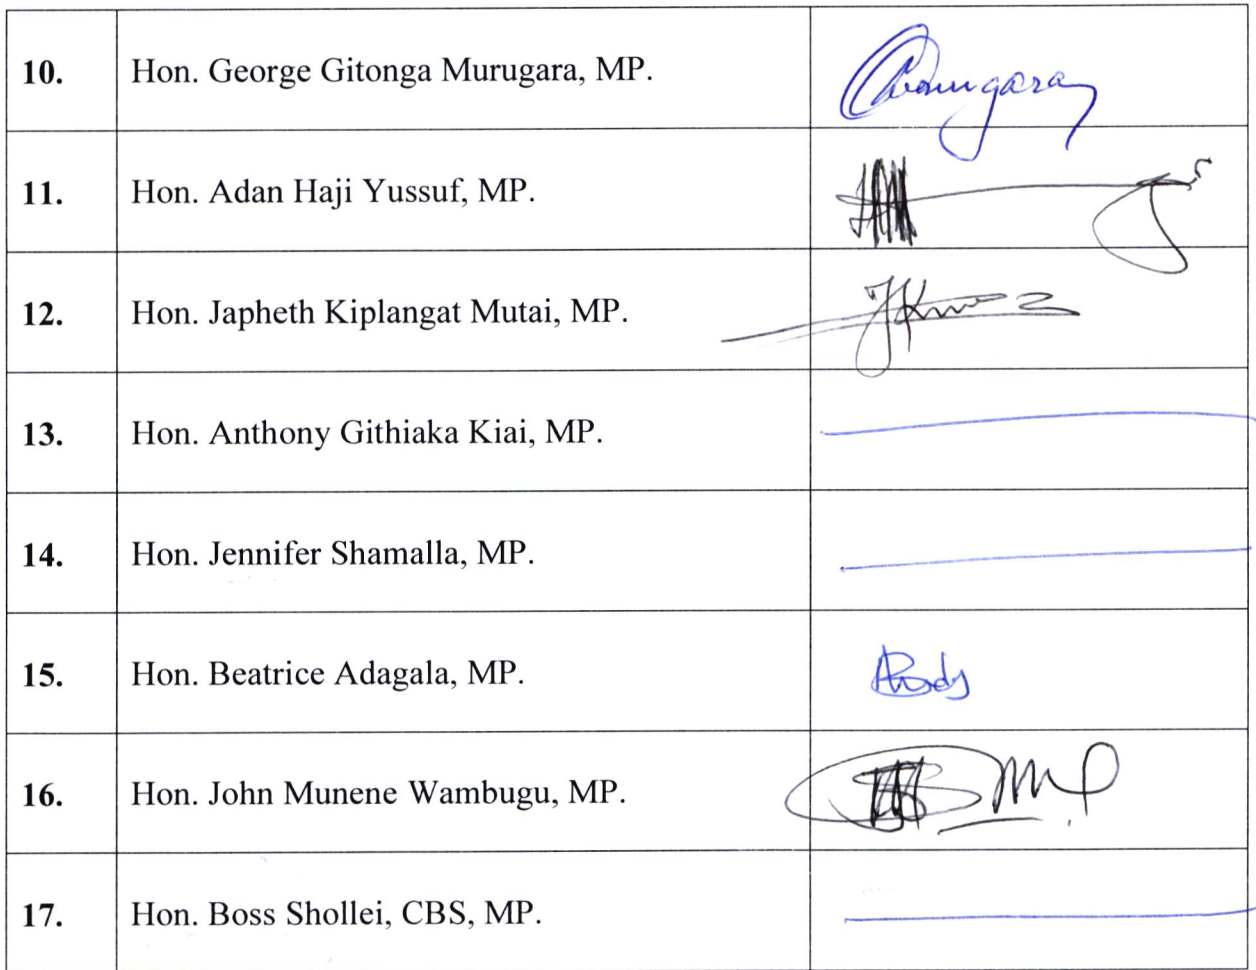 10. Hon. George Gitonga Murugara, MP.
11. Hon. Adan Haji Yussuf, MP.
12. Hon. Japheth Kiplangat Mutai, MP.
13. Hon. Anthony Githiaka Kiai, MP.
14. Hon. Jennifer Shamalla, MP.
15. Hon. Beatrice Adagala, MP.
16. Hon. John Munene Wambugu, MP.
17. Hon. Boss Shollei, CBS, MP.